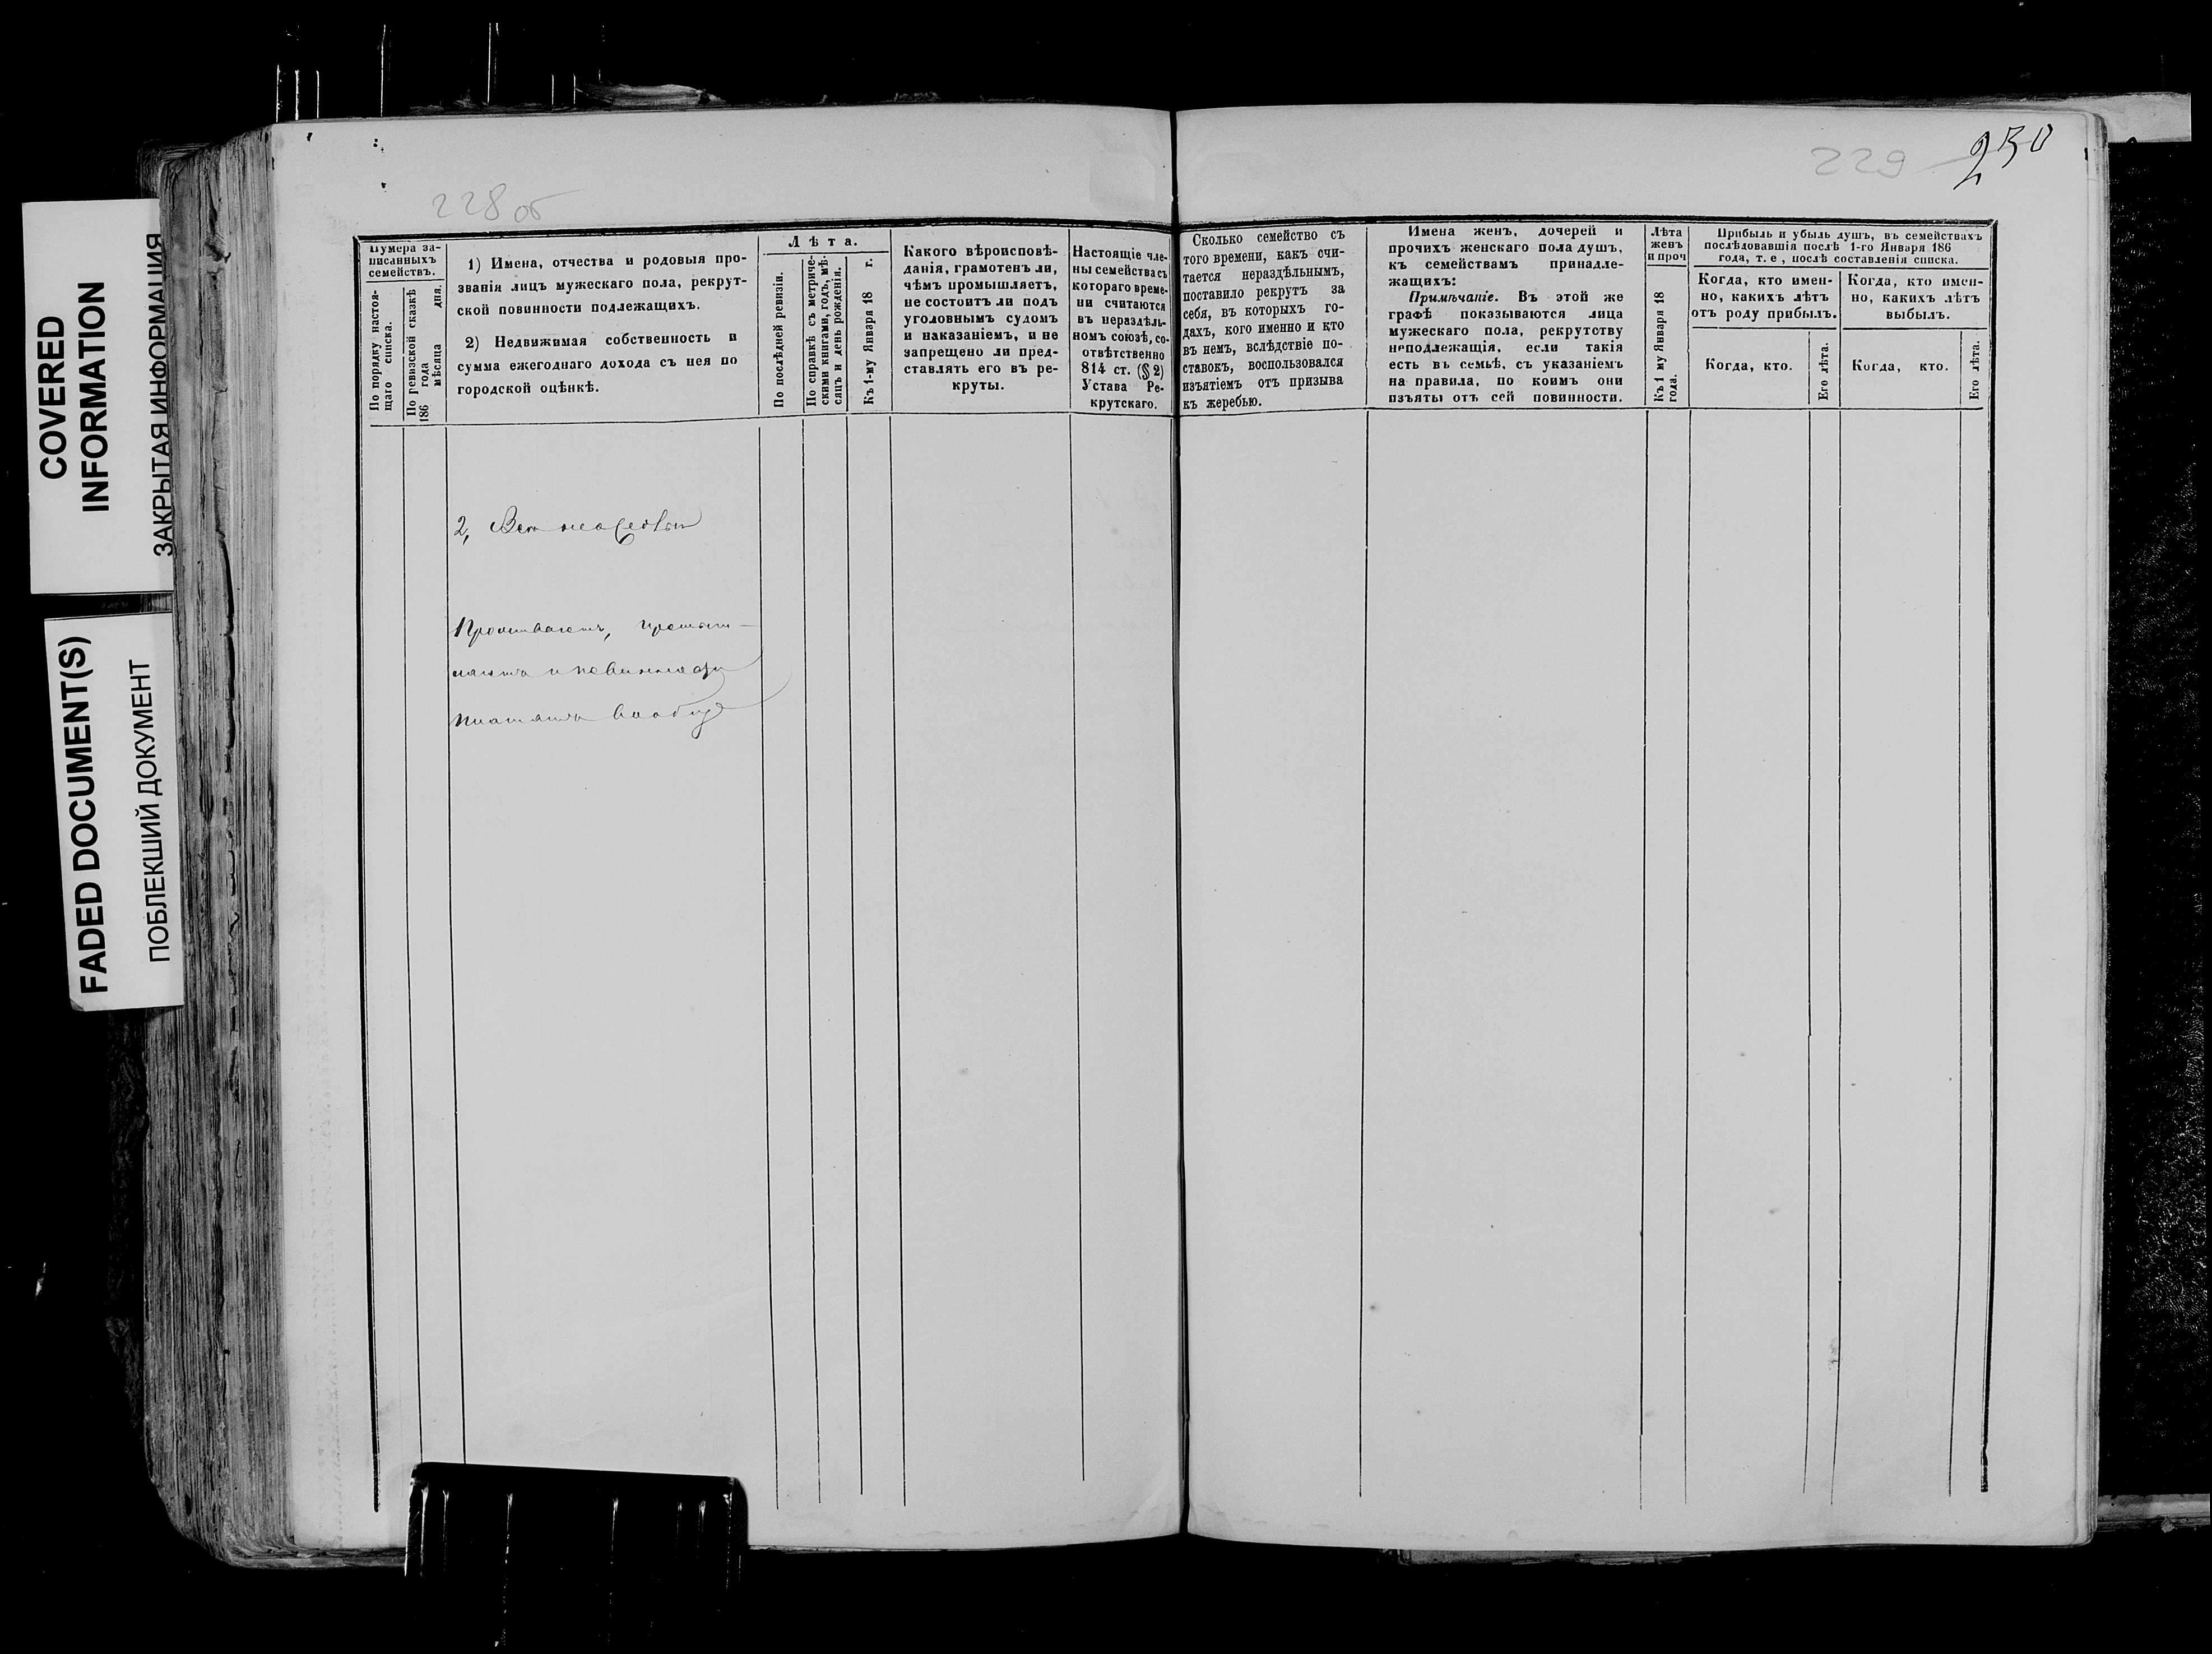 COVERED
INFORMATION
ЗАКРЫТАЯ ИНФОРМАЦИЯ
FADED DOCUMENT(S)
ПОБЛЕКШИЙ ДОКУМЕНТ
228 об
229
230
Нумера за-
писанныхъ
семействъ.
По порядку настоя-
щаго списка.
По ревизской сказкѣ
186 года мѣсяца дня.
1) Имена, отчества и родовыя про-
званія лицъ мужескаго пола, рекрут-
ской повинности подлежащихъ.
2) Недвижимая собственность и
сумма ежегоднаго дохода съ нея по
городской оцѣнкѣ.
Лѣта.
По послѣдней ревизіи.
По справкѣ съ метриче-
скими книгами, годъ, мѣ-
сяцъ и день рожденія.
Къ 1-му Января 18 г.
Какого вѣроисповѣ-
данія, грамотенъ ли,
чѣмъ промышляетъ,
не состоитъ ли подъ
уголовнымъ судомъ
и наказаніемъ, и не
запрещено ли пред-
ставлять его въ ре-
круты.
Настоящіе чле-
ны семейства съ
котораго време-
ни считаются
въ нераздѣль-
номъ союзѣ, со-
отвѣтственно
814 ст. (§ 2)
Устава Ре-
крутскаго.
Сколько семейство съ
того времени, какъ счи-
тается нераздѣльнымъ,
поставило рекрутъ за
себя, въ которыхъ го-
дахъ, кого именно и кто
въ немъ, вслѣдствіе по-
ставокъ, воспользовался
изъятіемъ отъ призыва
къ жеребью.
Имена женъ, дочерей и
прочихъ женскаго пола душъ,
къ семействамъ принадле-
жащихъ:
Примѣчаніе. Въ этой же
графѣ показываются лица
мужескаго пола, рекрутству
неподлежащія, если такія
есть въ семьѣ, съ указаніемъ
на правила, по коимъ они
изъяты отъ сей повинности.
Лѣта
женъ
и проч
Къ 1 му Января 18
года.
Прибыль и убыль душъ, въ семействахъ
послѣдовавшія послѣ 1-го Января 186
года, т. е, послѣ составленія списка.
Когда, кто имен-
но, какихъ лѣтъ
отъ роду прибылъ.
Когда, кто имен-
но, какихъ лѣтъ
выбылъ.
Когда, кто.
Его лѣта.
Когда, кто.
Его лѣта.
2,
и повинности
платятъ вообще